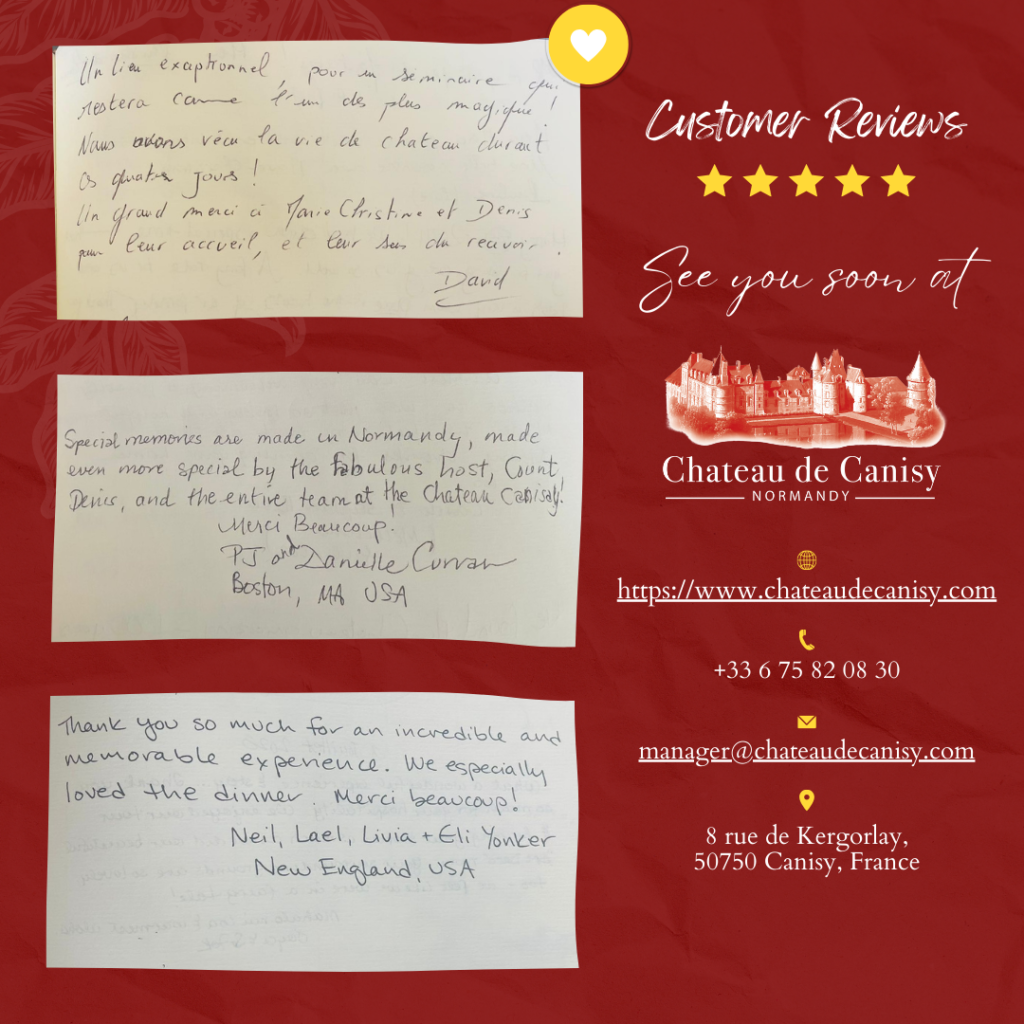 Un lieu exceptionnel, pour un séminaire qui
restera comme l'un des plus magique!
Nous avons vécu la vie de chateau durant
ces quatre jours!
Un grand merci à Marie Christine et Denis
pour leur accueil, et leur sens du recevoir.
David
Special memories are made in Normandy, made
even more special by the fabulous host, Count
Denis, and the entire team at the Chateau Canisy!
Merci Beaucoup!
PJ and Danielle Curran
Boston, MA USA
Thank you so much for an incredible and
memorable experience. We especially
loved the dinner. Merci beaucoup!
Neil, Lael, Livia + Eli Yonker
New England, USA
Customer Reviews
See you soon at
Chateau de Canisy
NORMANDY
https://www.chateaudecanisy.com
+33 6 75 82 08 30
manager@chateaudecanisy.com
8 rue de Kergorlay,
50750 Canisy, France